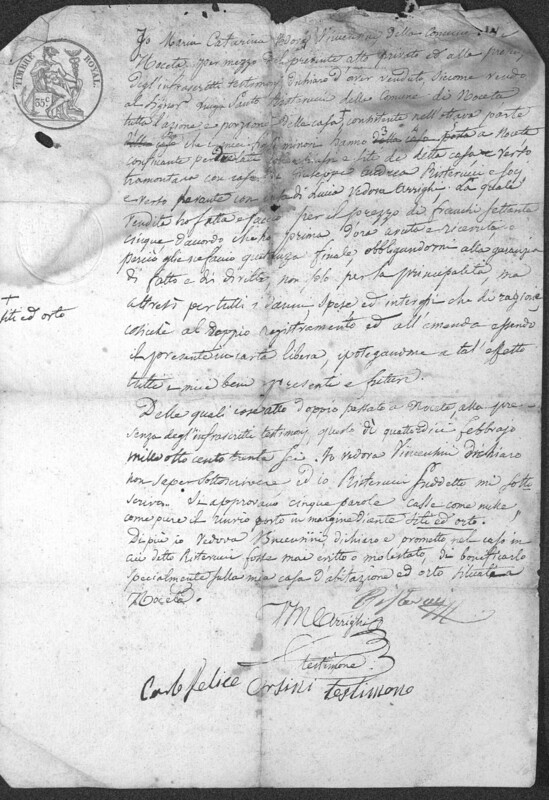 TIMBRE ROYAL.
35 c
Io Maria Catarina Vedova Vincenzini della Comune di
Noceta per mezzo del presente atto privato ed alla presenza
degl'infrascritti testimonj dichiaro d'aver venduto siccome vendo
al Signor Santo Ristorucci della Comune di Noceta
tutta l'azione e porzione della casa, consistente nell'ottava parte
della casa che minori hanno della casa posta a Noceta
confinante per due lati e siti di detta casa e verso
tramontana con casa di Giuseppe Andrea Ristorucci e
e verso con di Lucia Vedova Arrighi, la quale
vendita ho fatta e faccio per il prezzo di franchi settanta
cinque d'accordo che ho prima d'ora avuto e ricevuto e
perciò gliene faccio quietanza finale obbligandomi alla garanzia
di fatto e di diritto non solo per la principalità, ma
altresì per tutti i danni spese ed interessi che di ragione
cosichè al doppio registramento ed all'amenda essendo
il presente in carta libera, ipotegandone a tal'effetto
tutti i miei beni presenti e futuri.
+
siti ed orto
Delle quali cose atto doppio passato a Noceta, alla pre-
senza degl'infrascritti testimonj questo dì quattordici febbrajo
mille otto cento trenta sei. Io vedova Vincenzini dichiaro
non saper sottoscrivere ed io Ristorucci suddetto mi sotto
scrivo. Si approvano cinque parole casse come nulle,
come pure il rinvio posto in margine diante siti ed orto.
Di più io Vedova Vincenzini dichiaro e prometto nel caso in
cui detto Ristorucci fosse mai evitto o molestato, di bonificarlo
specialmente sulla mia casa d'abitazione ed orto situate a
Noceta.
Ristorucci
Arrighi
testimone
Carlo Felice Orsini testimone